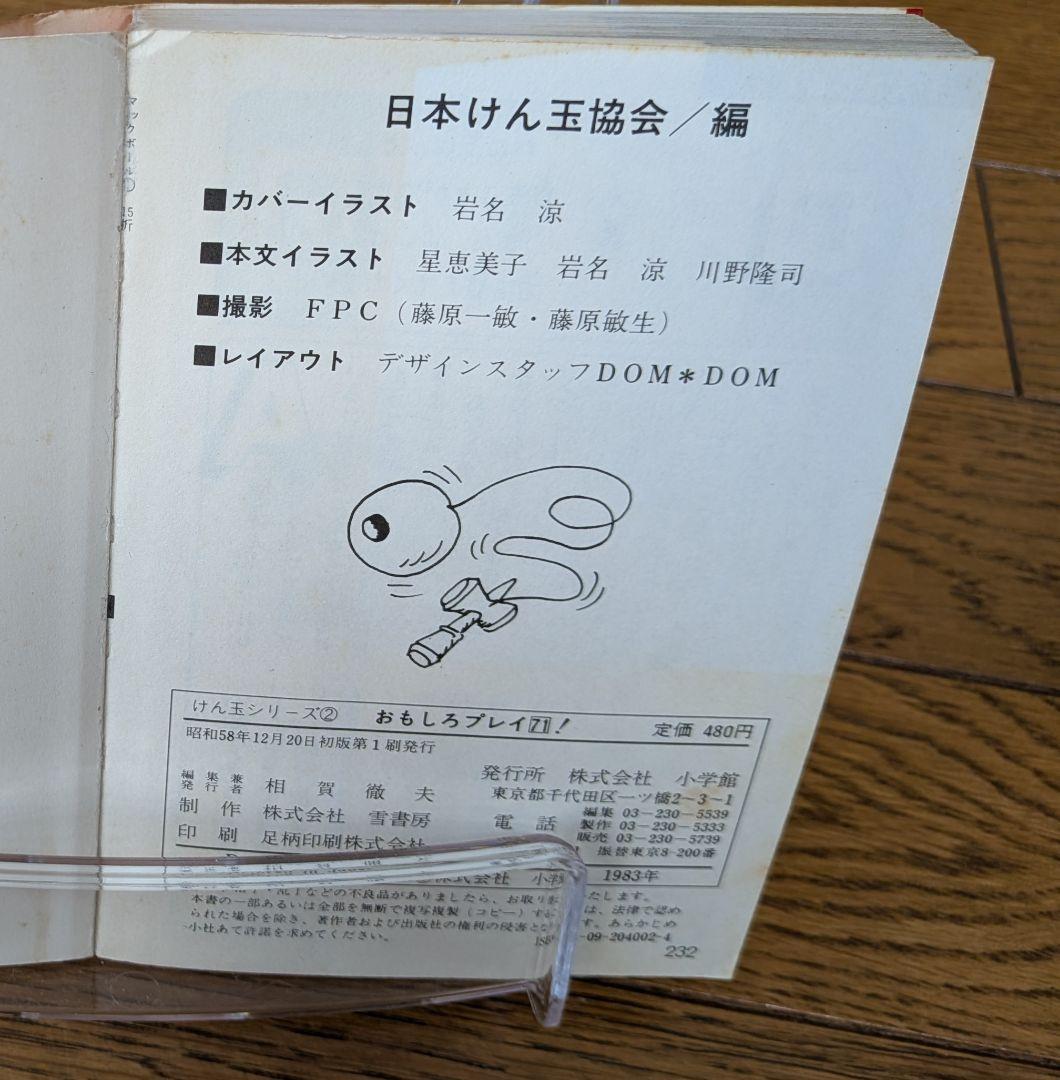 日本けん玉協会／編
■カバーイラスト　岩名　涼
■本文イラスト　星恵美子　岩名　涼　川野隆司
■撮影　FPC（藤原一敏・藤原敏生）
■レイアウト　デザインスタッフDOM＊DOM
けん玉シリーズ② おもしろプレイ71！ 定価 480円
昭和58年12月20日初版第1刷発行
編集兼発行者　相賀徹夫
制作　株式会社　雪書房
印刷　足柄印刷株式会社
発行所　株式会社　小学館
東京都千代田区一ツ橋2-3-1
電話　編集 03-230-5539
製作 03-230-5333
販売 03-230-5739
振替東京8-200番
株式会社　小学　1983年
などの不良品がありましたら、お取り　たします。
本書の一部あるいは全部を無断で複写複製（コピー）す　は、法律で認め
られた場合を除き、著作者および出版社の権利の侵害と　す。あらかじめ
小社あて許諾を求めてください。
-09-204002-4
232